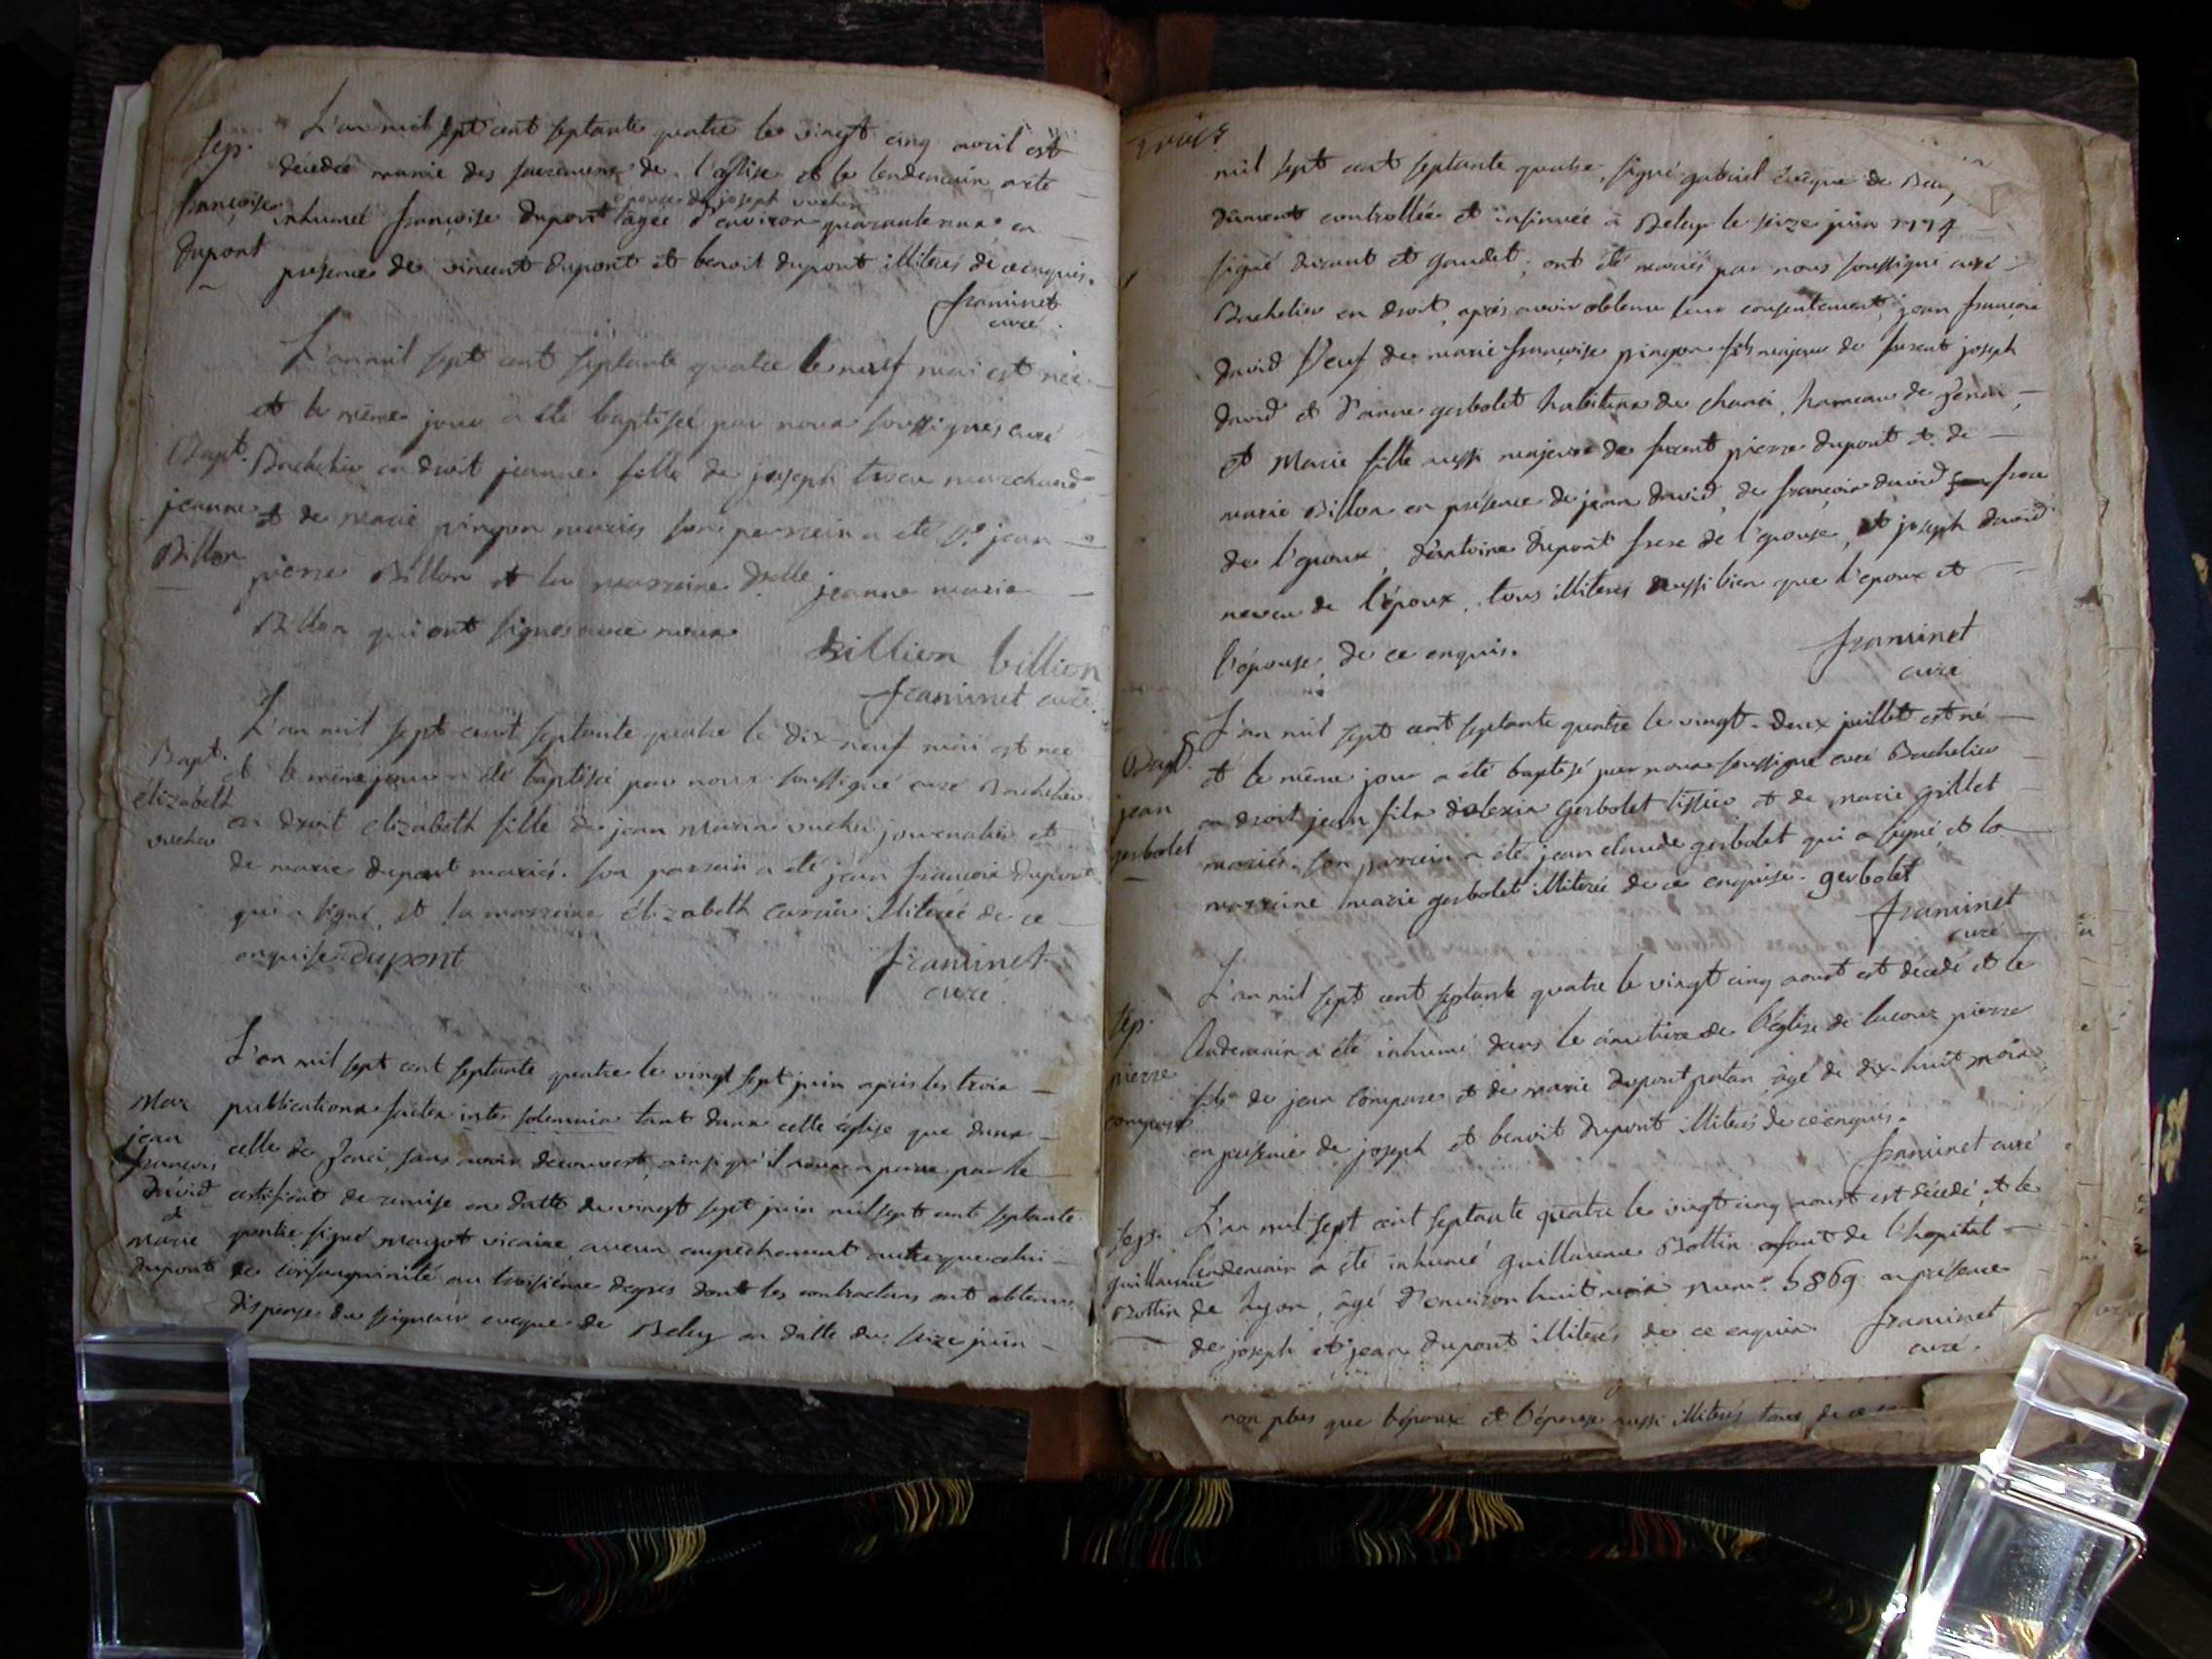 Sep.
françoise
dupont
L'an mil sept cent septante quatre le vingt cinq avril est
décédée munie des sacremens de l'église et le lendemain a été
épouse de joseph vucher
inhumée françoise dupont âgée d'environ quarante ans en
présence de vincent dupont et benoit dupont illiterés de ce enquis.
framinet
curé
Bapt.
jeanne
Billon
L'an mil sept cent septante quatre le neuf mai est née
et le même jour a été baptisée par nous soussigné curé
Bachelier en droit jeanne fille de joseph marchand
et de marie pingon mariés son parrein a été Sr. jean
pierre Billon et la marreine dselle jeanne marie
Billon qui ont signés avec nous
billion billion
framinet curé.
Bapt.
élizabeth
vucher
L'an mil sept cent septante quatre le dix neuf mai est née
et le même jour a été baptisée par nous soussigné curé Bachelier
en droit elizabeth fille de jean marin vucher journalier et
de marie dupont mariés. son parrain a été jean françois dupont
qui a signé, et la marreine élizabeth illiterée de ce
enquise dupont
framinet
curé.
Mar
jean
françois
david
et
marie
dupont
L'an mil sept cent septante quatre le vingt sept juin après les trois
publications faites inter solemnia tant dans cette église que dans
celle de Jenci, sans avoir decouvert, ainsi qu'il nous a paru par le
certificat de remise en datte du vingt sept juin mil sept cent septante
quatre signé mayot vicaire, aucun empechement autre que celui
de consanguinité au troisième degres dont les contractans ont obtenu
dispense du seigneur eveque de Beley en datte du seize juin
mil sept cent septante quatre, signé gabriel évêque de Beley
dûment controllée et insinuée à Beley le seize juin 1774
signé et gaudet; ont été mariés par nous soussigné curé
Bachelier en droit, après avoir obtenu leur consentement, jean françois
david veuf de marie françoise pingon fils majeur de furent joseph
david et d'anne gerbolet habitans de charci, hameau de Jenci,
et Marie fille aussi majeure de furent pierre dupont et de
marie Billon en présence de jean david, de françois david frere
de l'epoux, d'antoine dupont frere de l'epouse, et joseph david
neveu de l'époux, tous illiterés aussi bien que l'epoux et
l'épouse, de ce enquis.
framinet
curé
Bapt.
jean
gerbolet
L'an mil sept cent septante quatre le vingt-deux juillet est né
et le même jour a été baptisé par nous soussigné curé Bachelier
en droit jean fils d'alexis gerbolet tissier et de marie grillet
mariés. son parrein a été jean claude gerbolet qui a signé, et la
marreine marie gerbolet illiterée de ce enquise. gerbolet
framinet
curé
Sep.
pierre
L'an mil sept cent septante quatre le vingt cinq aoust est décédé et le
lendemain a été inhumé dans le cimetiere de l'église de lucour pierre
fils de jean et de marie dupont âgé de dix-huit mois
en présence de joseph et benoit dupont illiterés de ce enquis.
framinet curé
Sep.
guillaume
Bottin
L'an mil sept cent septante quatre le vingt cinq aoust est décédé, et le
lendemain a été inhumé guillaume Bottin enfant de l'hopital
de Lyon, âgé d'environ huit mois num° 5869. en présence
de joseph et jean dupont illiterés de ce enquis.
framinet
curé.
non plus que l'époux et l'épouse aussi illiterés tous de ce